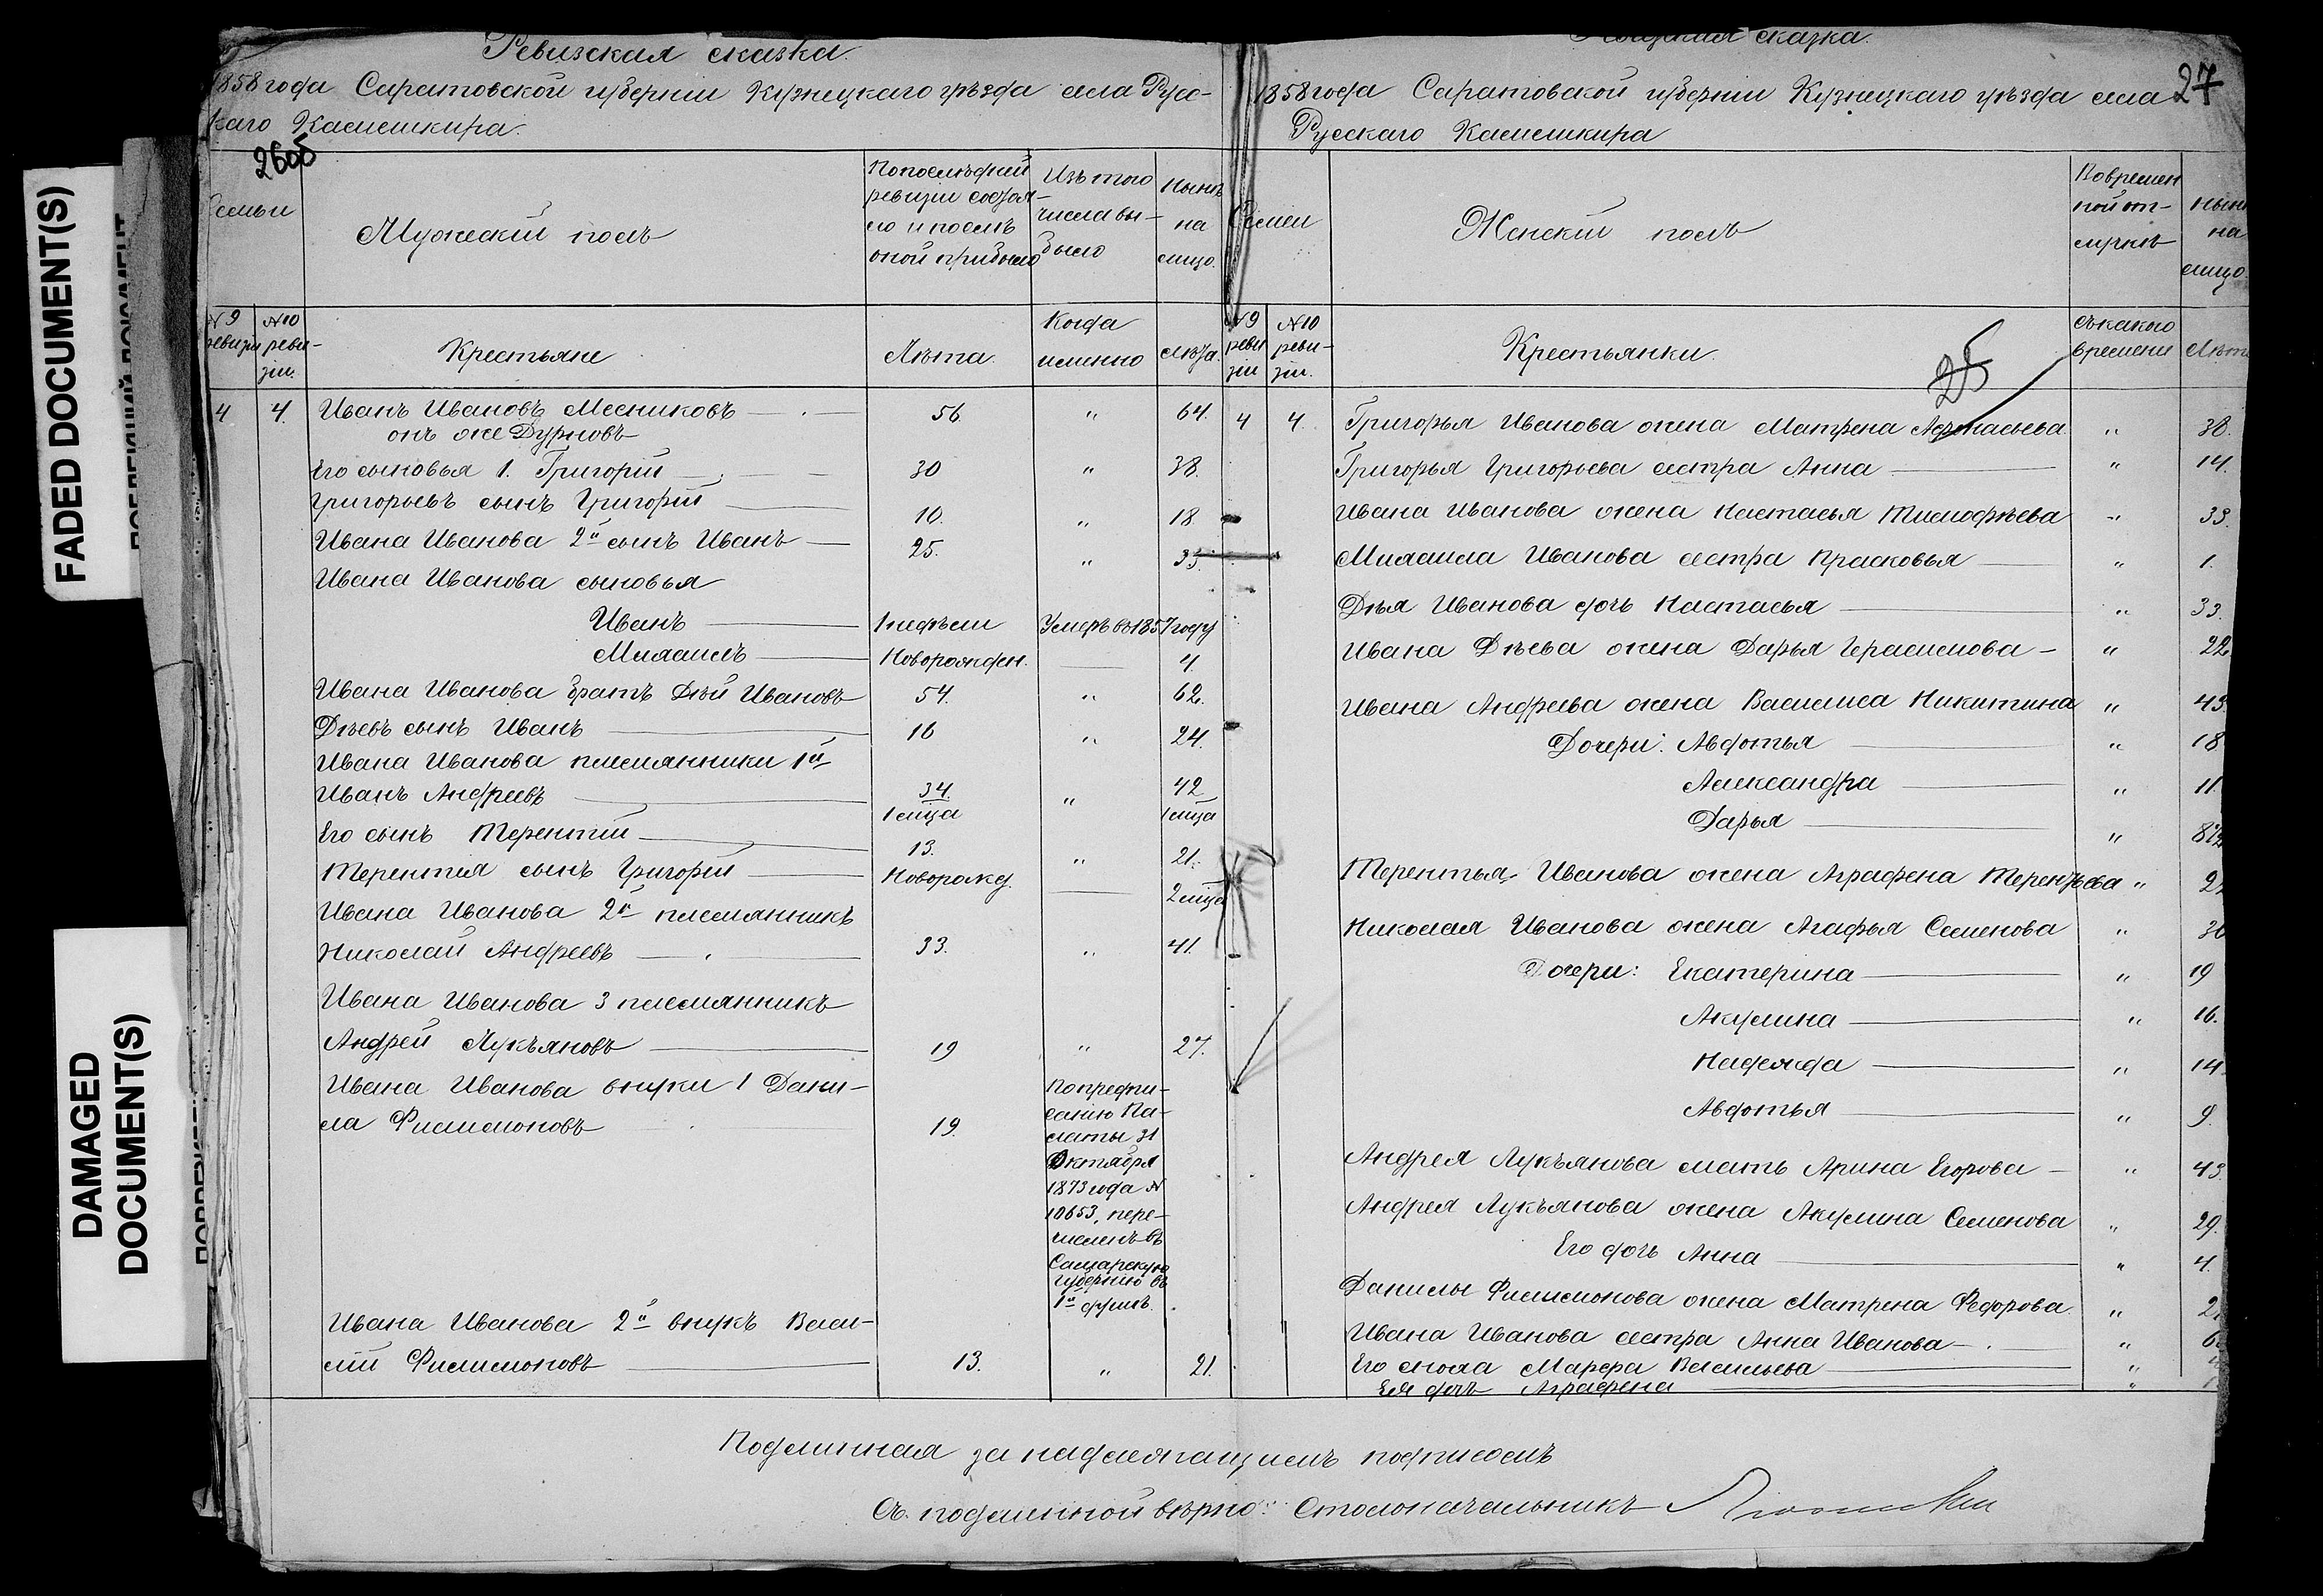 FADED DOCUMENT(S)
DAMAGED DOCUMENT(S)
Ревизская сказка.
1858 года Саратовской губерніи Кузнецкаго уѣзда села Русс-
каго Камешкира.
2605
Семьи
Мужескій полъ
По послѣдней ревизіи состоя-
ло и послѣ оной прибыло
Изъ того числа вы-
было
Нынѣ на лицо.
№ 9 ревизіи
№ 10 реви-
зіи.
Крестьяне
Лѣта.
Когда именно
Лѣта.
4 4. Иванъ Ивановъ Месниковъ 56 " 64.
онъ же Дурновъ
Его сыновья 1. Григорій 30 " 38.
Григорьевъ сынъ Григорій 10. " 18
Ивана Иванова 2й сынъ Иванъ 25. " 33.
Ивана Иванова сыновья
Иванъ 1 недѣли Умеръ въ 1857 году
Михаилъ Новорожден. 4
Ивана Иванова братъ Дѣй Ивановъ 54. " 62.
Дѣевъ сынъ Иванъ 16 " 24.
Ивана Иванова племянники 1й
Иванъ Андреевъ 34. " 42
1 мца 1 мца
Его сынъ Терентій 13. " 21.
Терентія сынъ Григорій Новорожд. 2 мца
Ивана Иванова 2й племянникъ
Николай Андреевъ 33. " 41.
Ивана Иванова 3 племянникъ
Андрей Лукъяновъ 19 " 27.
Ивана Иванова внуки 1 Дани-
ла Филимоновъ 19.
По предпи-
санію Па-
латы 31
Октября
1873 года №
10653, пере-
численъ въ
Самарскую
губернію въ
1й
Ивана Иванова 2й внукъ Васи-
лій Филимоновъ 13. " 21.
сказка.
27
1858 года Саратовской губерніи Кузнецкаго уѣзда села
Русскаго Камешкира
Семьи
Женскій полъ
Во времен
ной от-
лучкѣ
Нынѣ на лицо.
№ 9 реви
зіи
№ 10 реви-
зіи.
Крестьянки.
25
съ какого времени
Лѣта
4 4. Григорья Иванова жена Матрена Афонасьева " 38.
Григорья Григорьева сестра Анна " 14.
Ивана Иванова жена Настасья Тимофѣева " 33.
Михаила Иванова сестра Прасковья " 1.
Дѣя Иванова дочь Настасья " 33.
Ивана Дѣева жена Дарья Герасимова " 22
Ивана Андреева жена Василиса Никитина " 43.
Дочери: Авдотья " 18
Александра " 11.
Дарья "
Терентья Иванова жена Аграфена Терентьева "
Николая Иванова жена Агафья Семенова "
Дочери: Екатерина " 19
Акулина " 16.
Надежда " 14.
Авдотья " 9.
Андрея Лукъянова мать Арина Егорова " 43.
Андрея Лукъянова жена Акулина Семенова " 29.
Его дочь Анна " 4.
Данилы Филимонова жена Матрена Федорова. "
Ивана Иванова сестра Анна Иванова "
Его сноха Марфа Васильева "
Ея дочь Аграфена "
Подлинная за надлежащимъ подписомъ
Съ подлинной вѣрно: Столоначальникъ